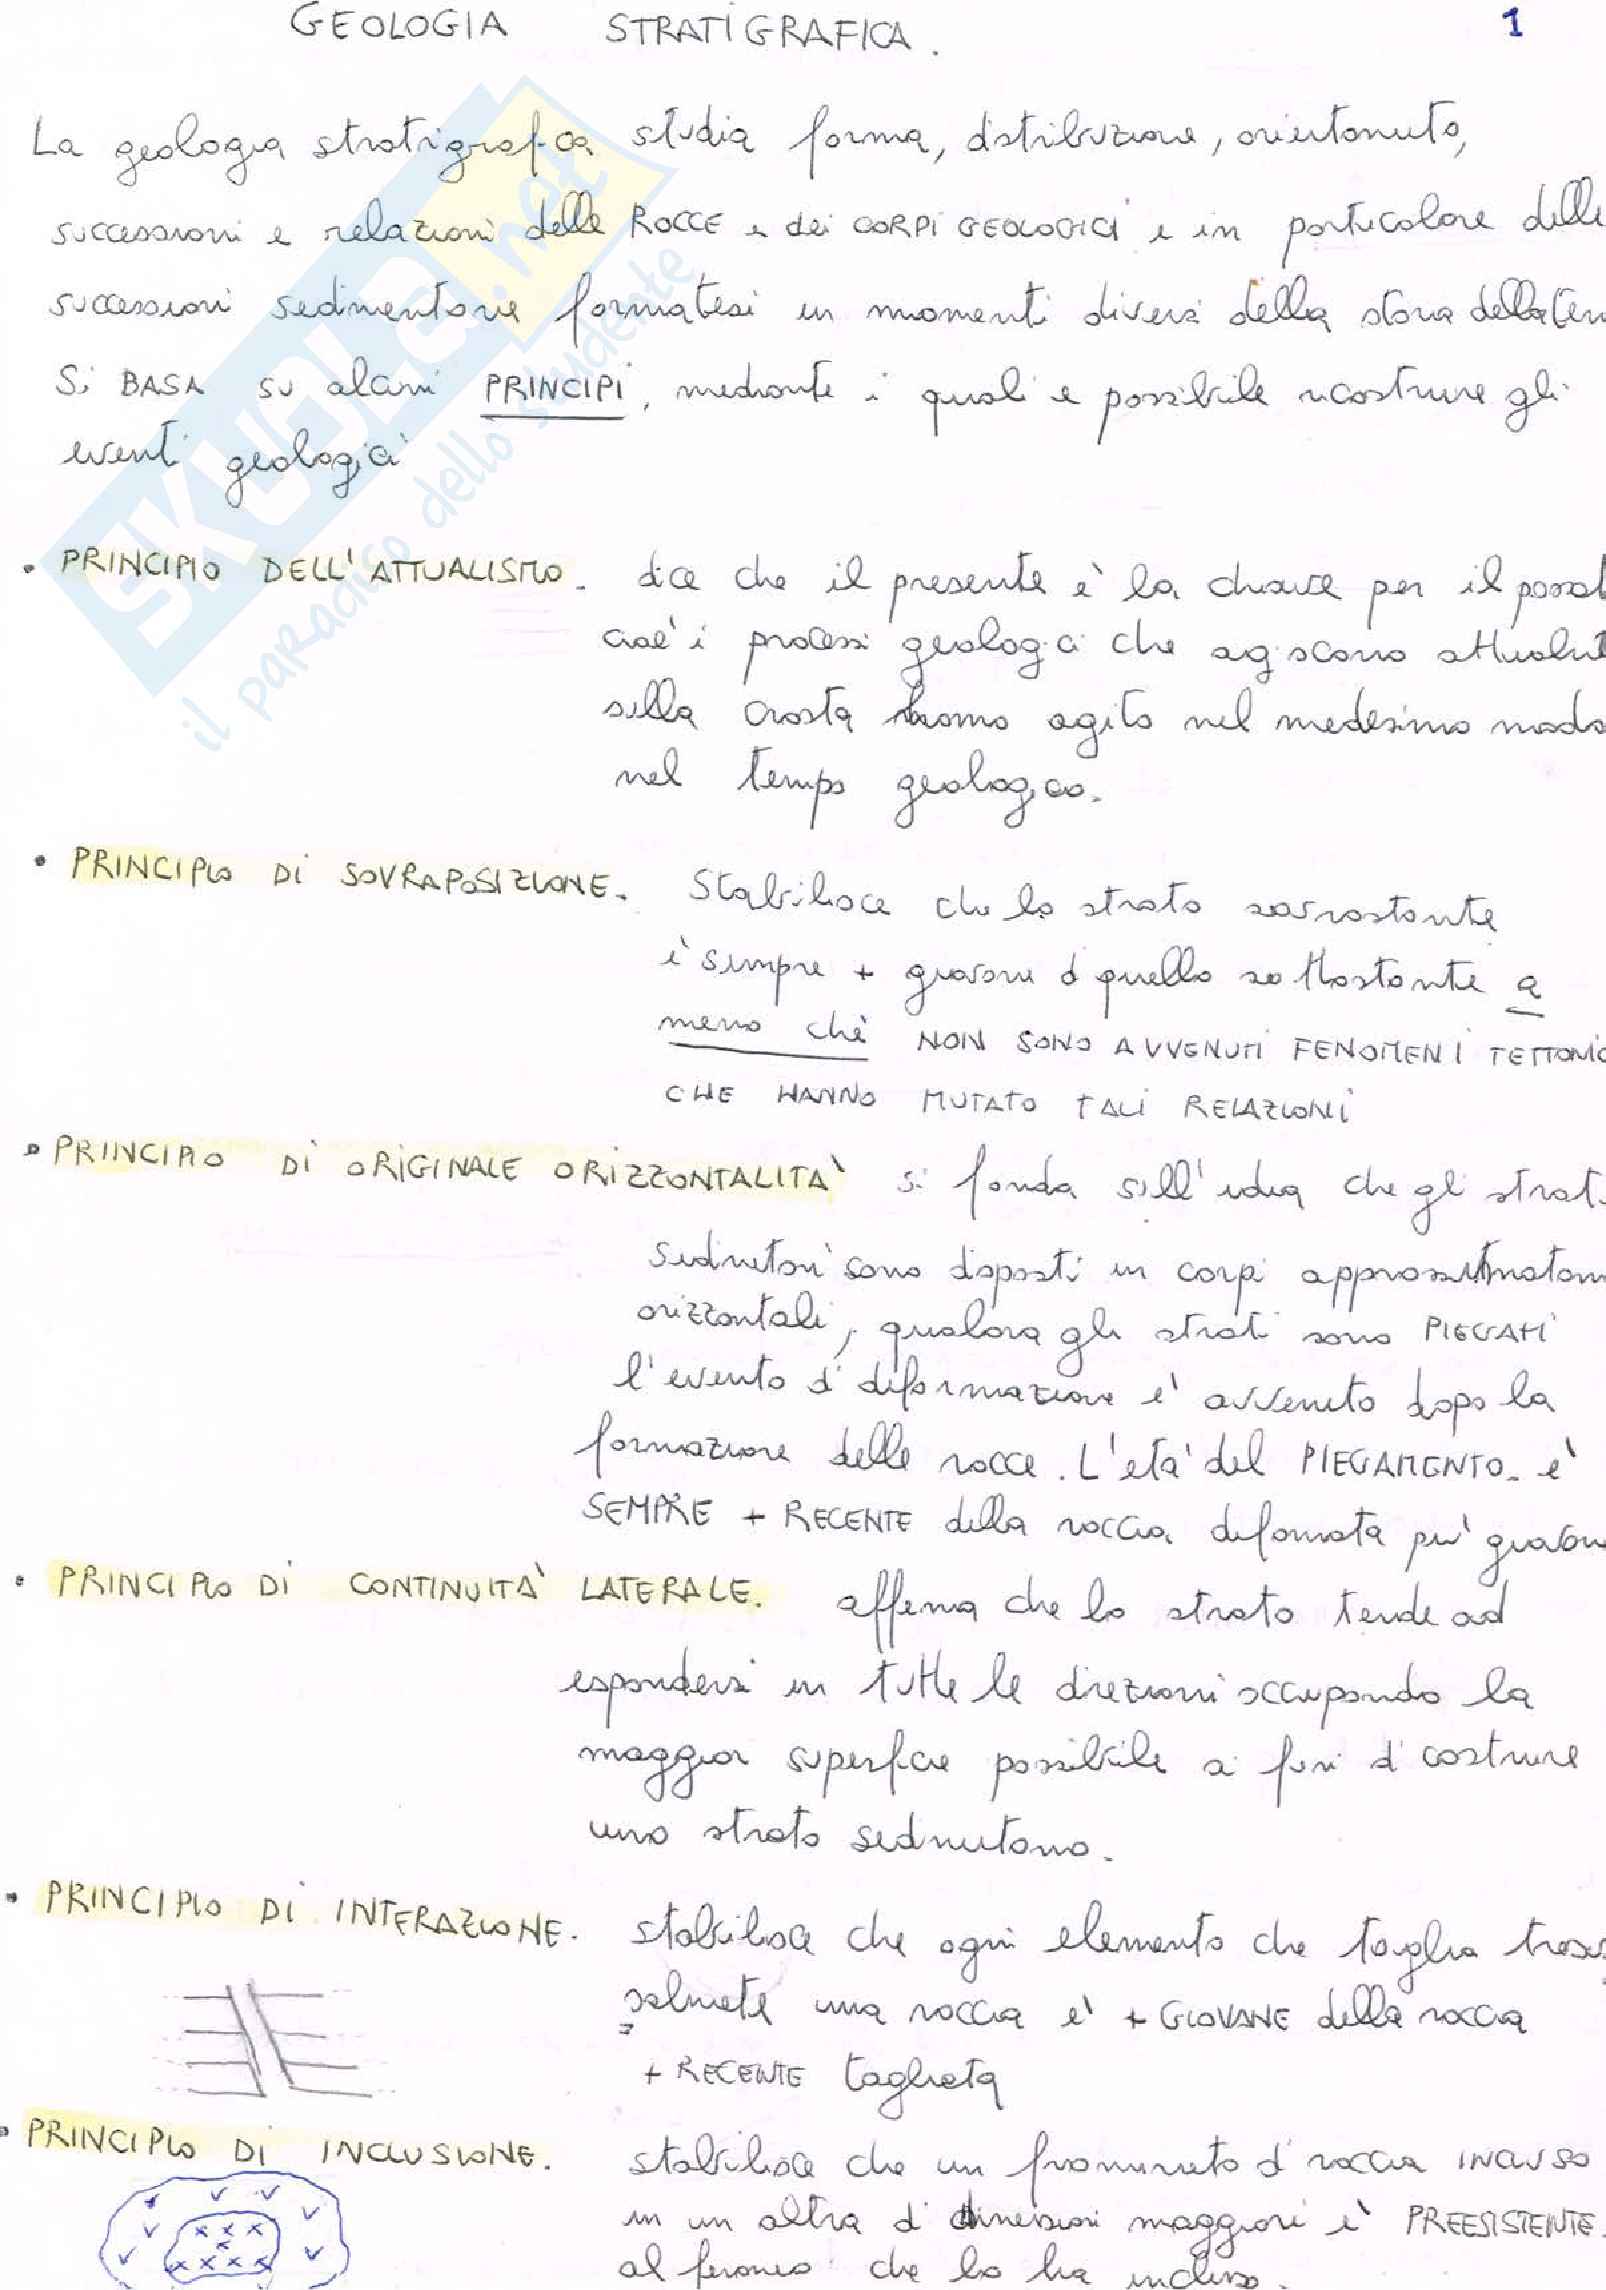 GEOLOGIA STRATIGRAFICA. 1
La geologia stratigrafica studia forma, distribuzione, orientamento,
successioni e relazioni delle ROCCE e dei CORPI GEOLOGICI e in particolare delle
successioni sedimentarie formatesi in momenti diversi della storia della terr
Si BASA su alcuni PRINCIPI, mediante i quali e possibile ricostruire gli
eventi geologici
• PRINCIPIO DELL'ATTUALISMO. dice che il presente è la chiave per il passat
cioè i processi geologici che agiscono attualmt
sulla crosta hanno agito nel medesimo modo
nel tempo geologico.
• PRINCIPIO DI SOVRAPOSIZIONE. Stabilisce che lo strato sovrastante
è sempre + giovane di quello sottostante a
meno chè NON SONO AVVENUTI FENOMENI TETTONIC
CHE HANNO MUTATO TALI RELAZIONI
• PRINCIPIO DI ORIGINALE ORIZZONTALITA' si fonda sull'idea che gli strati
sedimetari sono disposti in corpi approssimatam
orizzontali, qualora gli strati sono PIEGATI
l'evento di deformazione è avvenuto dopo la
formazione delle rocce. L'età del PIEGAMENTO. è
SEMPRE + RECENTE della roccia deformata più giovan
• PRINCIPIO DI CONTINUITA' LATERALE. afferma che lo strato tende ad
espandersi in tutte le direzioni occupando la
maggior superficie possibile ai fini di costruire
uno strato sedimentario.
• PRINCIPIO DI INTERAZIONE. stabilisce che ogni elemento che taglia trasver
salmete una roccia è + GIOVANE della roccia
+ RECENTE tagliata
• PRINCIPIO DI INCLUSIONE. stabilisce che un frammento di roccia INCLUSO
in un altra di dimensioni maggiori è PREESISTENTE.
al fenomeno che lo ha incluso.
SKUOLA.net
il paradiso dello studente